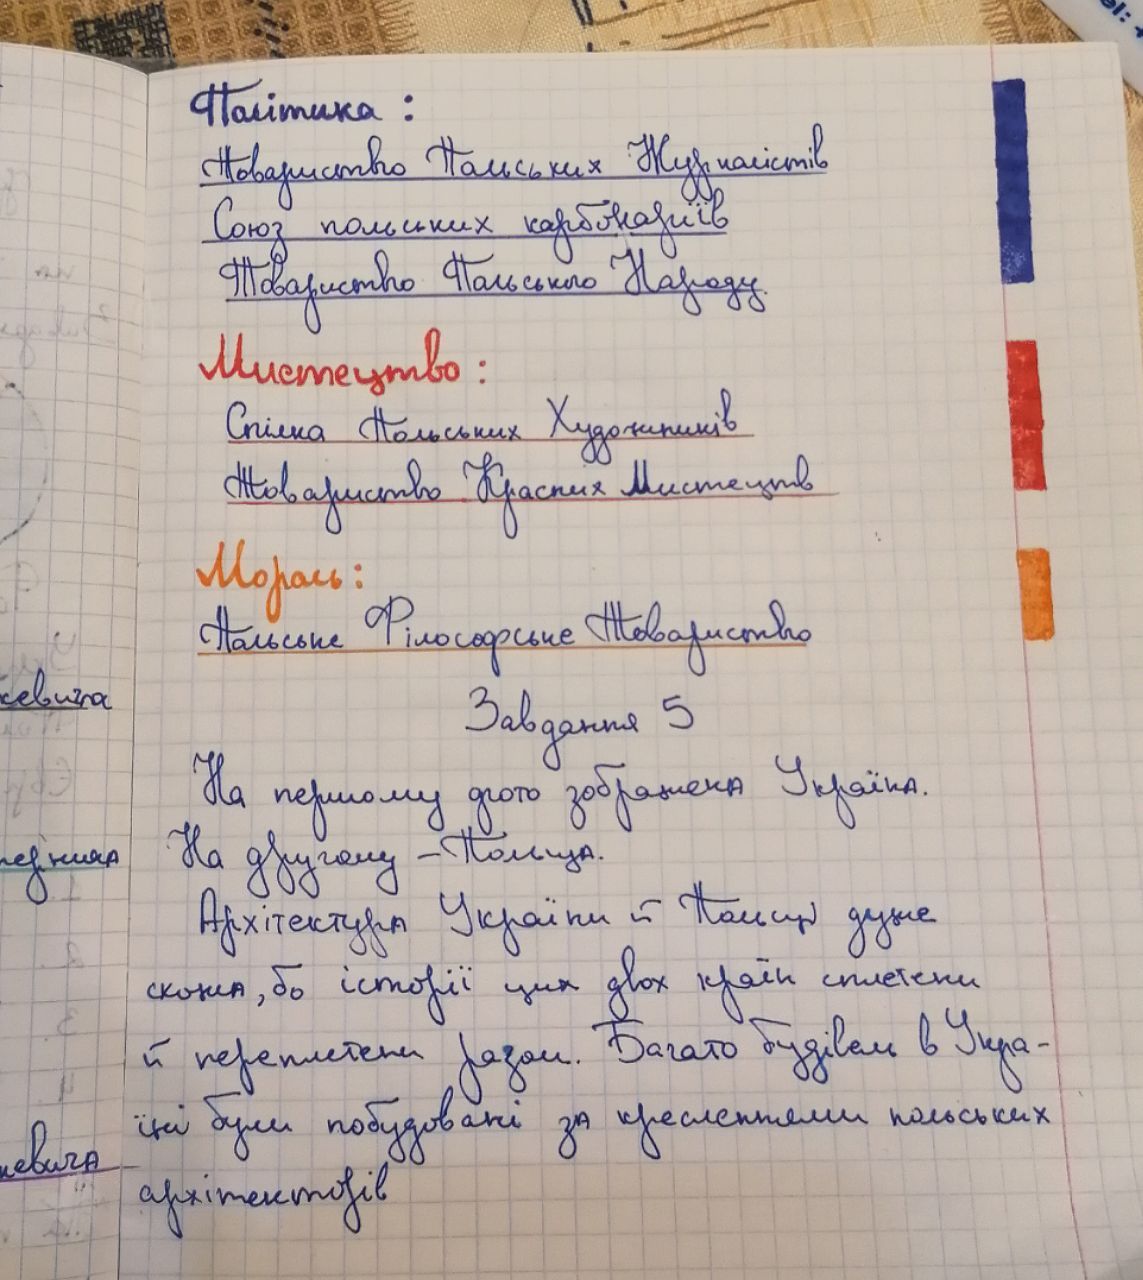 Політика:
Товариство Польських Журналістів
Союз польських карбонаріїв
Товариство Польського Народу.
Мистецтво:
Спілка Польських Художників
Товариство Красних Мистецтв
Мораль:
Польське Філософське Товариство
Завдання 5
На першому фото зображена Україна.
На другому – Польща.
Архітектура України й Польщі дуже
схожа, бо історії цих двох країн сплетени
й переплетени разом. Багато будівель в Укра-
їні були побудовані за кресленнями польських
архітекторів